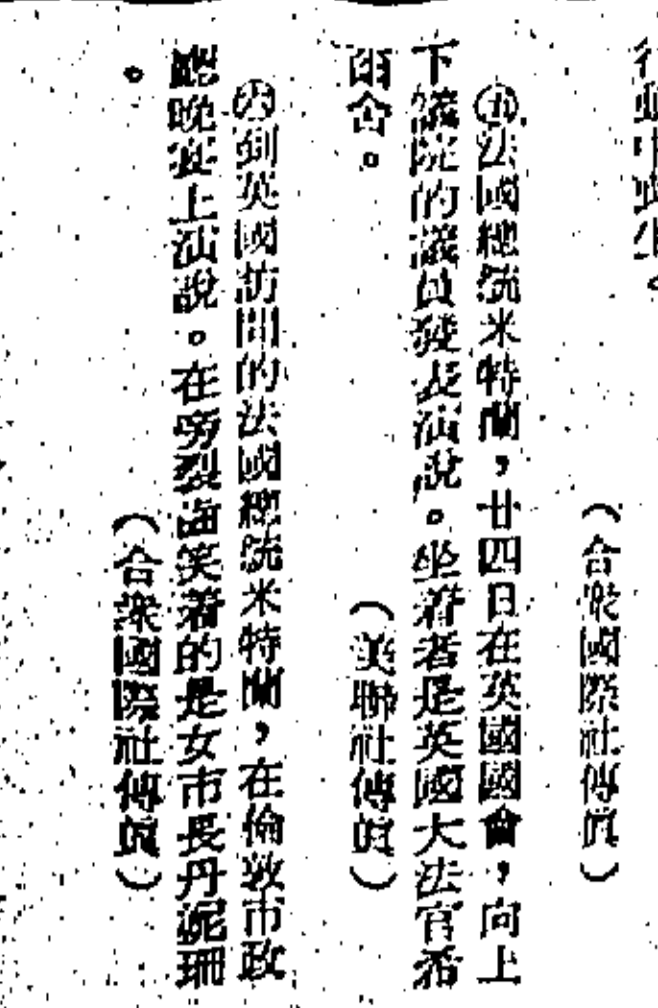 （合衆國際社傳眞）
㊄法國總統米特蘭，廿四日在英國國會，向上
下議院的議員發表演說。坐着者是英國大法官希
爾舍。
（美聯社傳眞）
㊅到英國訪問的法國總統米特蘭，在倫敦市政
廳晚宴上演說。在旁裂齒笑着的是女市長丹妮珊
。
（合衆國際社傳眞）